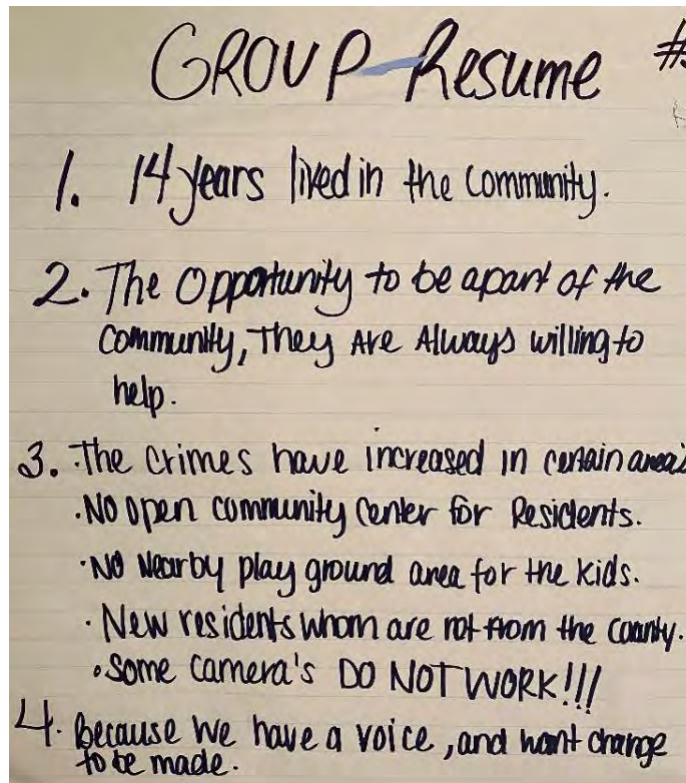 GROUP Resume #
1. 14 years lived in the community.
2. The Opportunity to be apart of the
community, They Are Always willing to
help.
3. ·The crimes have increased in certain area's
·No open community center for Residents.
·No Nearby play ground area for the kids.
· New residents whom are not from the county.
·Some Camera's DO NOT WORK!!!
4. Because we have a voice, and want change
to be made.